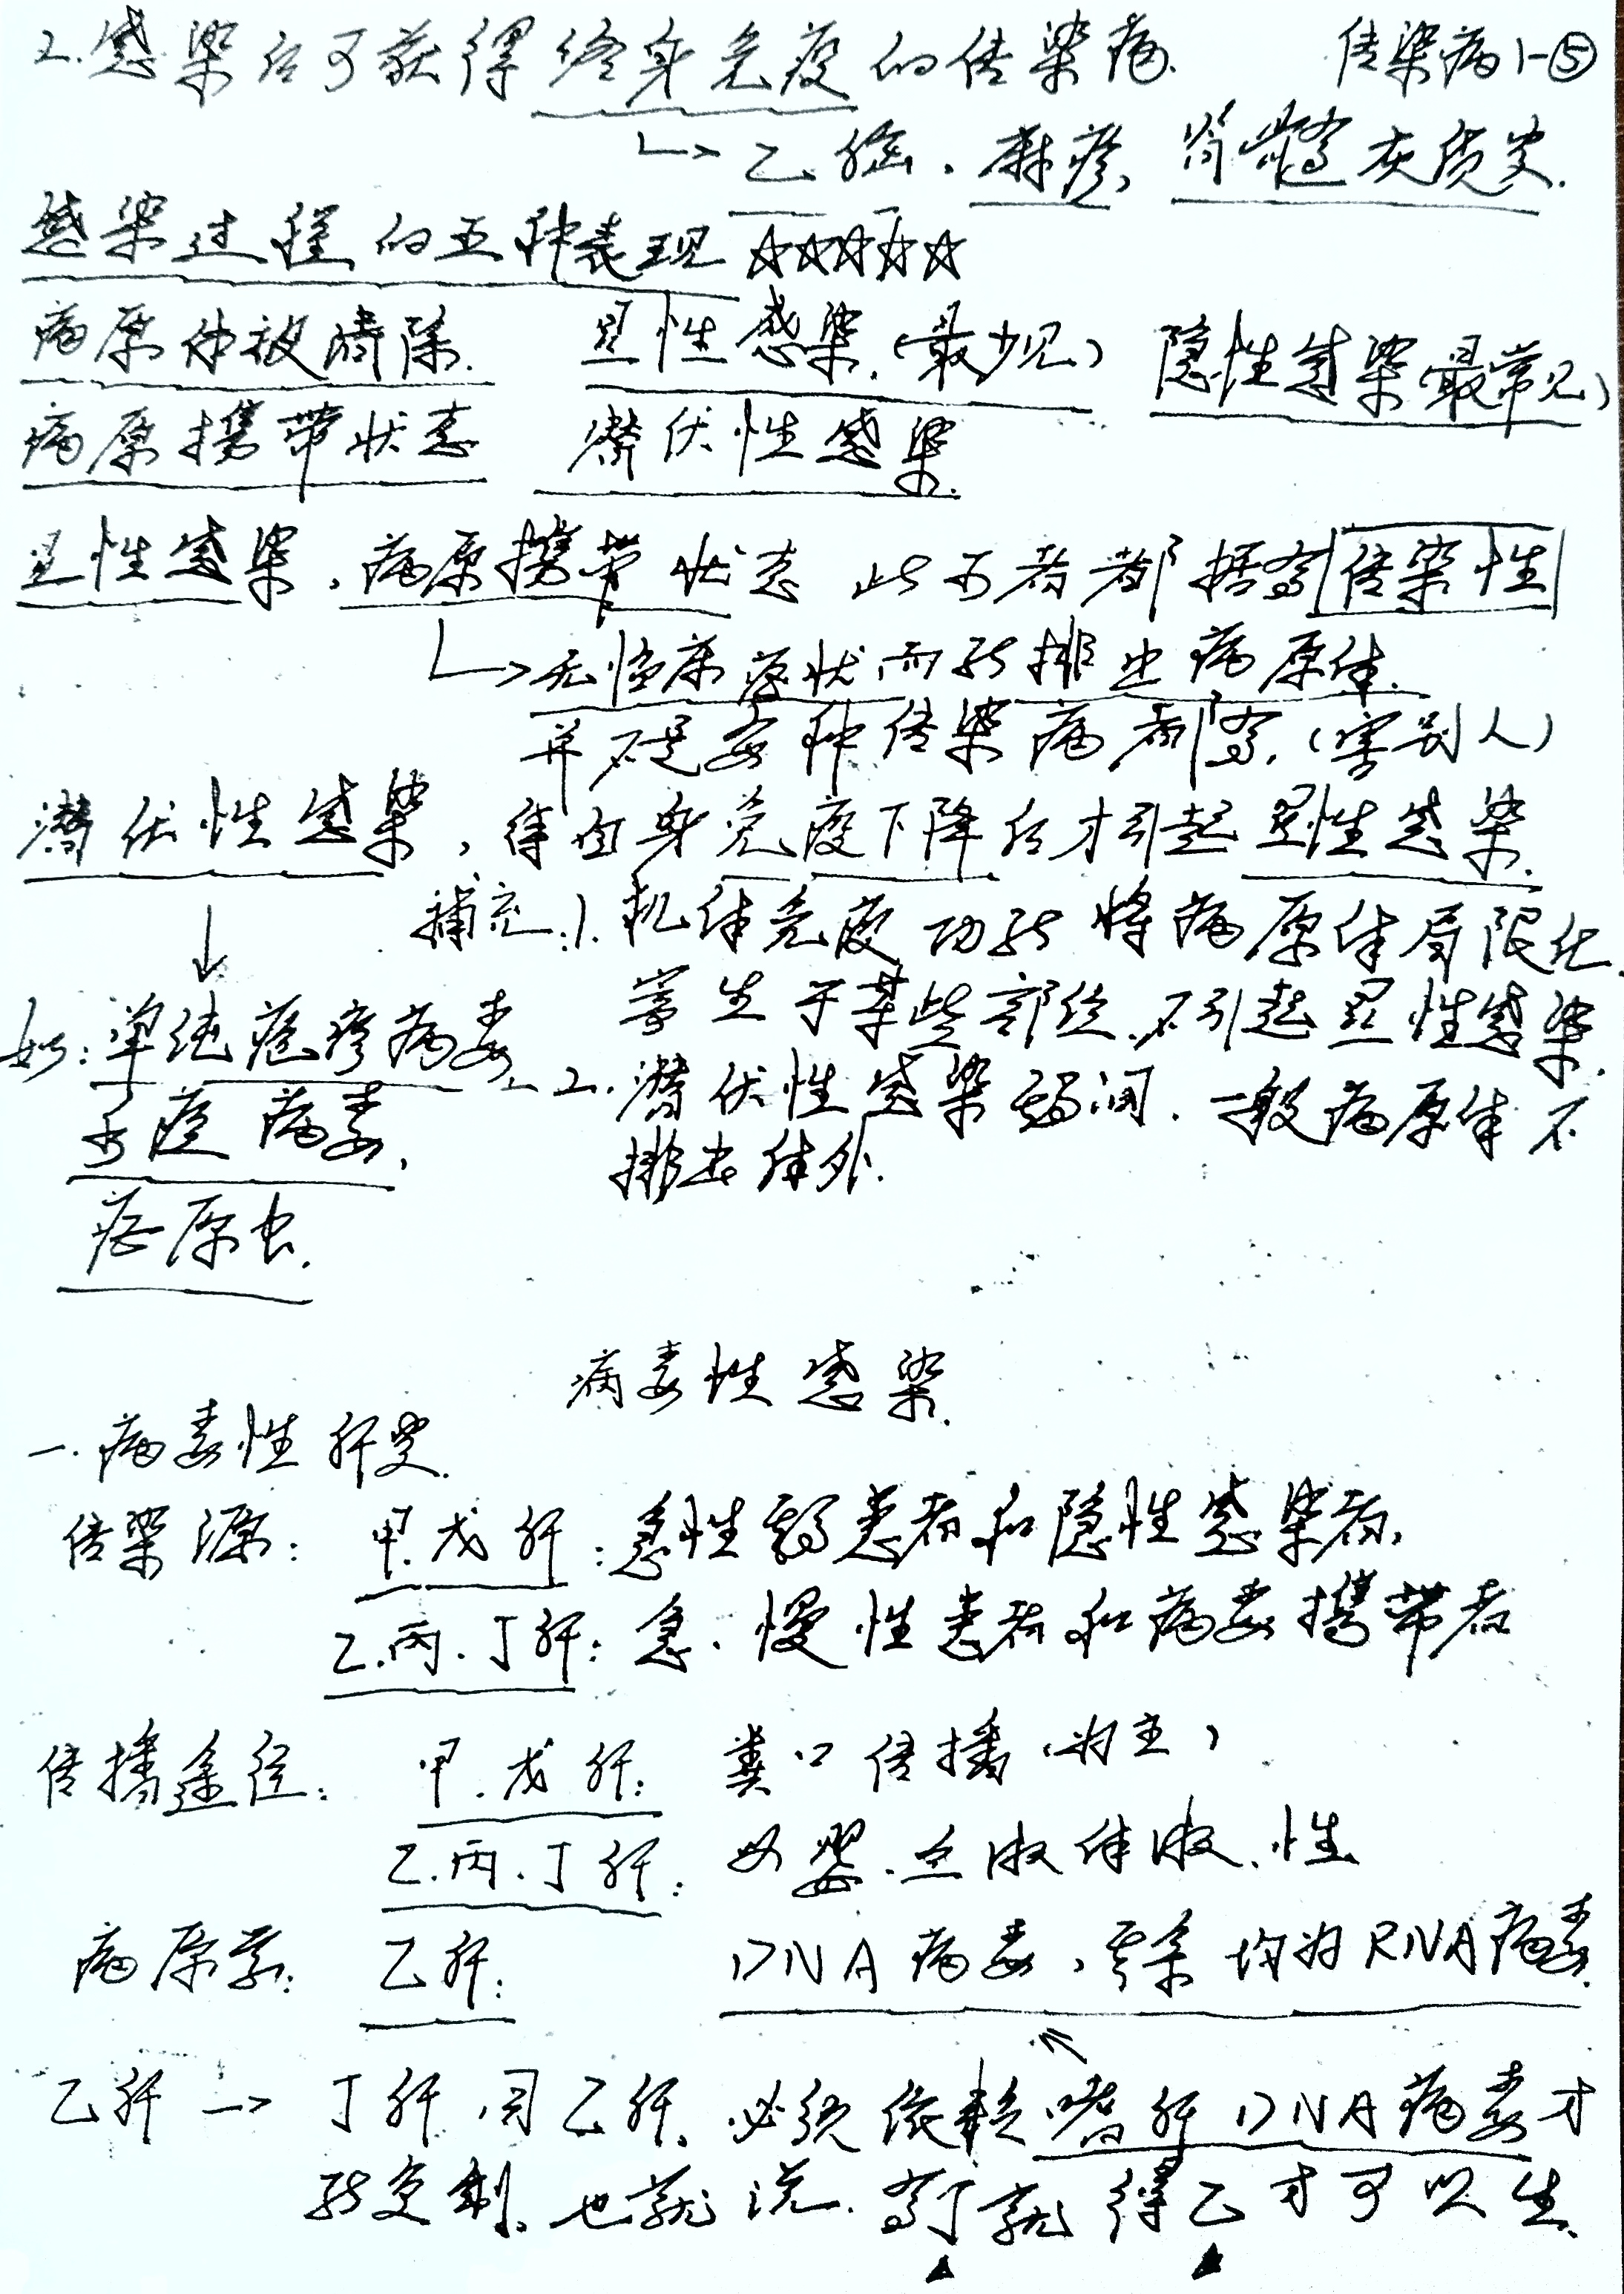 2.感染后可获得终身免疫的传染病. 传染病1-⑤
↳乙脑、麻疹、脊髓灰质炎.
感染过程的五种表现☆☆☆☆☆
病原体被清除. 显性感染.(最少见) 隐性感染(最常见)
病原携带状态 潜伏性感染.
显性感染、病原携带状态 此 者都 传染性
↳无临床症状而能排出病原体.
并不是每种传染病都有.(害别人)
潜伏性感染,待自身免疫下降后才引起显性感染.
↓ 补充:1.机体免疫功能将病原体局限化.
寄生于某些部位.不引起显性感染.
如:单纯疱疹病毒、 2.潜伏性感染期间.一般病原体不
水痘病毒、 排出体外.
疟原虫.
病毒性感染.
一.病毒性肝炎.
传染源: 甲.戊肝:急性期患者和隐性感染者、
乙.丙.丁肝:急、慢性患者和病毒携带者
传播途径: 甲.戊肝: 粪口传播(为主)
乙.丙.丁肝: 母婴.血液体液、性
病原学: 乙肝: DNA病毒,其余均为RNA病毒.
乙肝→丁肝同乙肝、必须依赖嗜肝DNA病毒才
能复制、也就说.有丁就得乙才可以生、